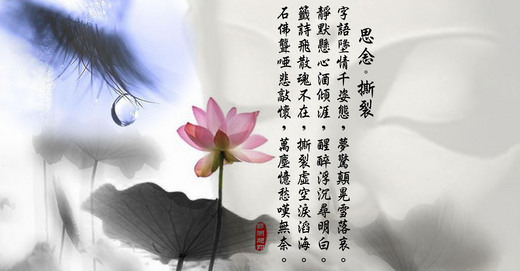 思念。撕裂
字語墜情千姿態，夢驚顛晃雪落哀。
靜默懸心酒傾涯，醒醉浮沉尋明白。
籤詩飛散魂不在，撕裂虛空淚滔海。
石佛聾啞悲敲懷，萬塵憶愁嘆無奈。